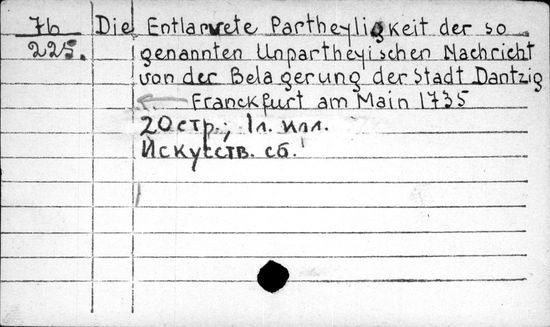 7b Die Entlarvete Partheyligkeit der so
225. genannten Unpartheyischen Nachricht
von der Belagerung der Stadt Dantzig
Franckfurt am Main 1735
20 стр.; 1 л. илл.
Искусств. сб.